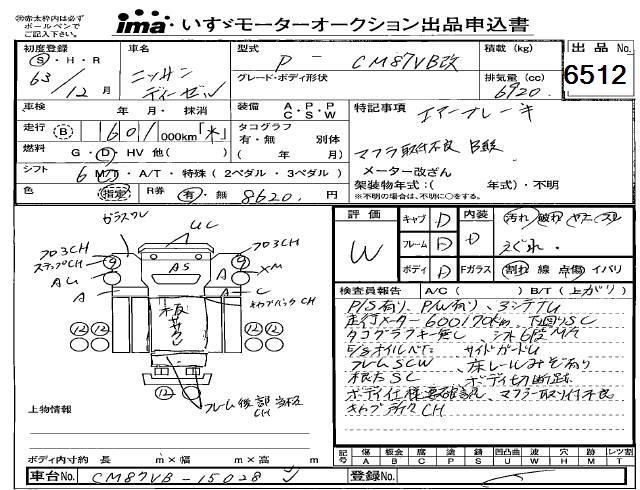 ※赤太枠内は必ず
ボールペンで
ご記入下さい。
ima いすゞモーターオークション出品申込書
初度登録
S・H・R
63年/12月
車名
ニッサン
ディーゼル
型式
P - CM87VB改
グレード・ボディ形状
積載(kg)
排気量(cc)
6920
出品No.
6512
車検 年 月・抹消
装備 A・P・P
C・S・W
特記事項 エアーブレーキ
走行 B 1601 000km「不」
タコグラフ
有・無 別体
( 年 月)
マフラ取付不良 B錆
燃料 G・D・HV 他( )
メーター改ざん
シフト 6 M/T・A/T・特殊(2ペダル・3ペダル)
架装物年式:( 年式)・不明
※不明の場合は、不明に○をする。
色 指定 R券 有・無 8620 円
評価 W
キャブ D
フレーム D
ボディ D
内装 D
Fガラス
汚れ 破れ ヤニ スレ
こげれ・
割れ 線 点傷 イバリ
検査員報告 A/C( ) B/T(上がり)
P/S有り、P/W有り、3ジデフU
走行メーター600170km、下回りSC
タコグラフキー無し シフト6段M/T
サイドガードU
フレームSCW 床レールみぞ有り
根太SC ボディ切断跡
ボディ仕様要確認 マフラー取り付不良
キャブデイクCH
ガラスクル
UC
フロ3CH
ステップCH
AU
A
AS
フロ3CH
XM
C
A
キャブバックCH
板
サク
9
9
12
12
12
12
12
フレーム後部当板
CH
上物情報
ボディ内寸約 長 m×幅 m×高 m
記号 傷A 板金B 腐C 塗P 錆S 凹凸曲U 波W 穴H 跡M レツ割T
車台No. CM87VB-15028
登録No.